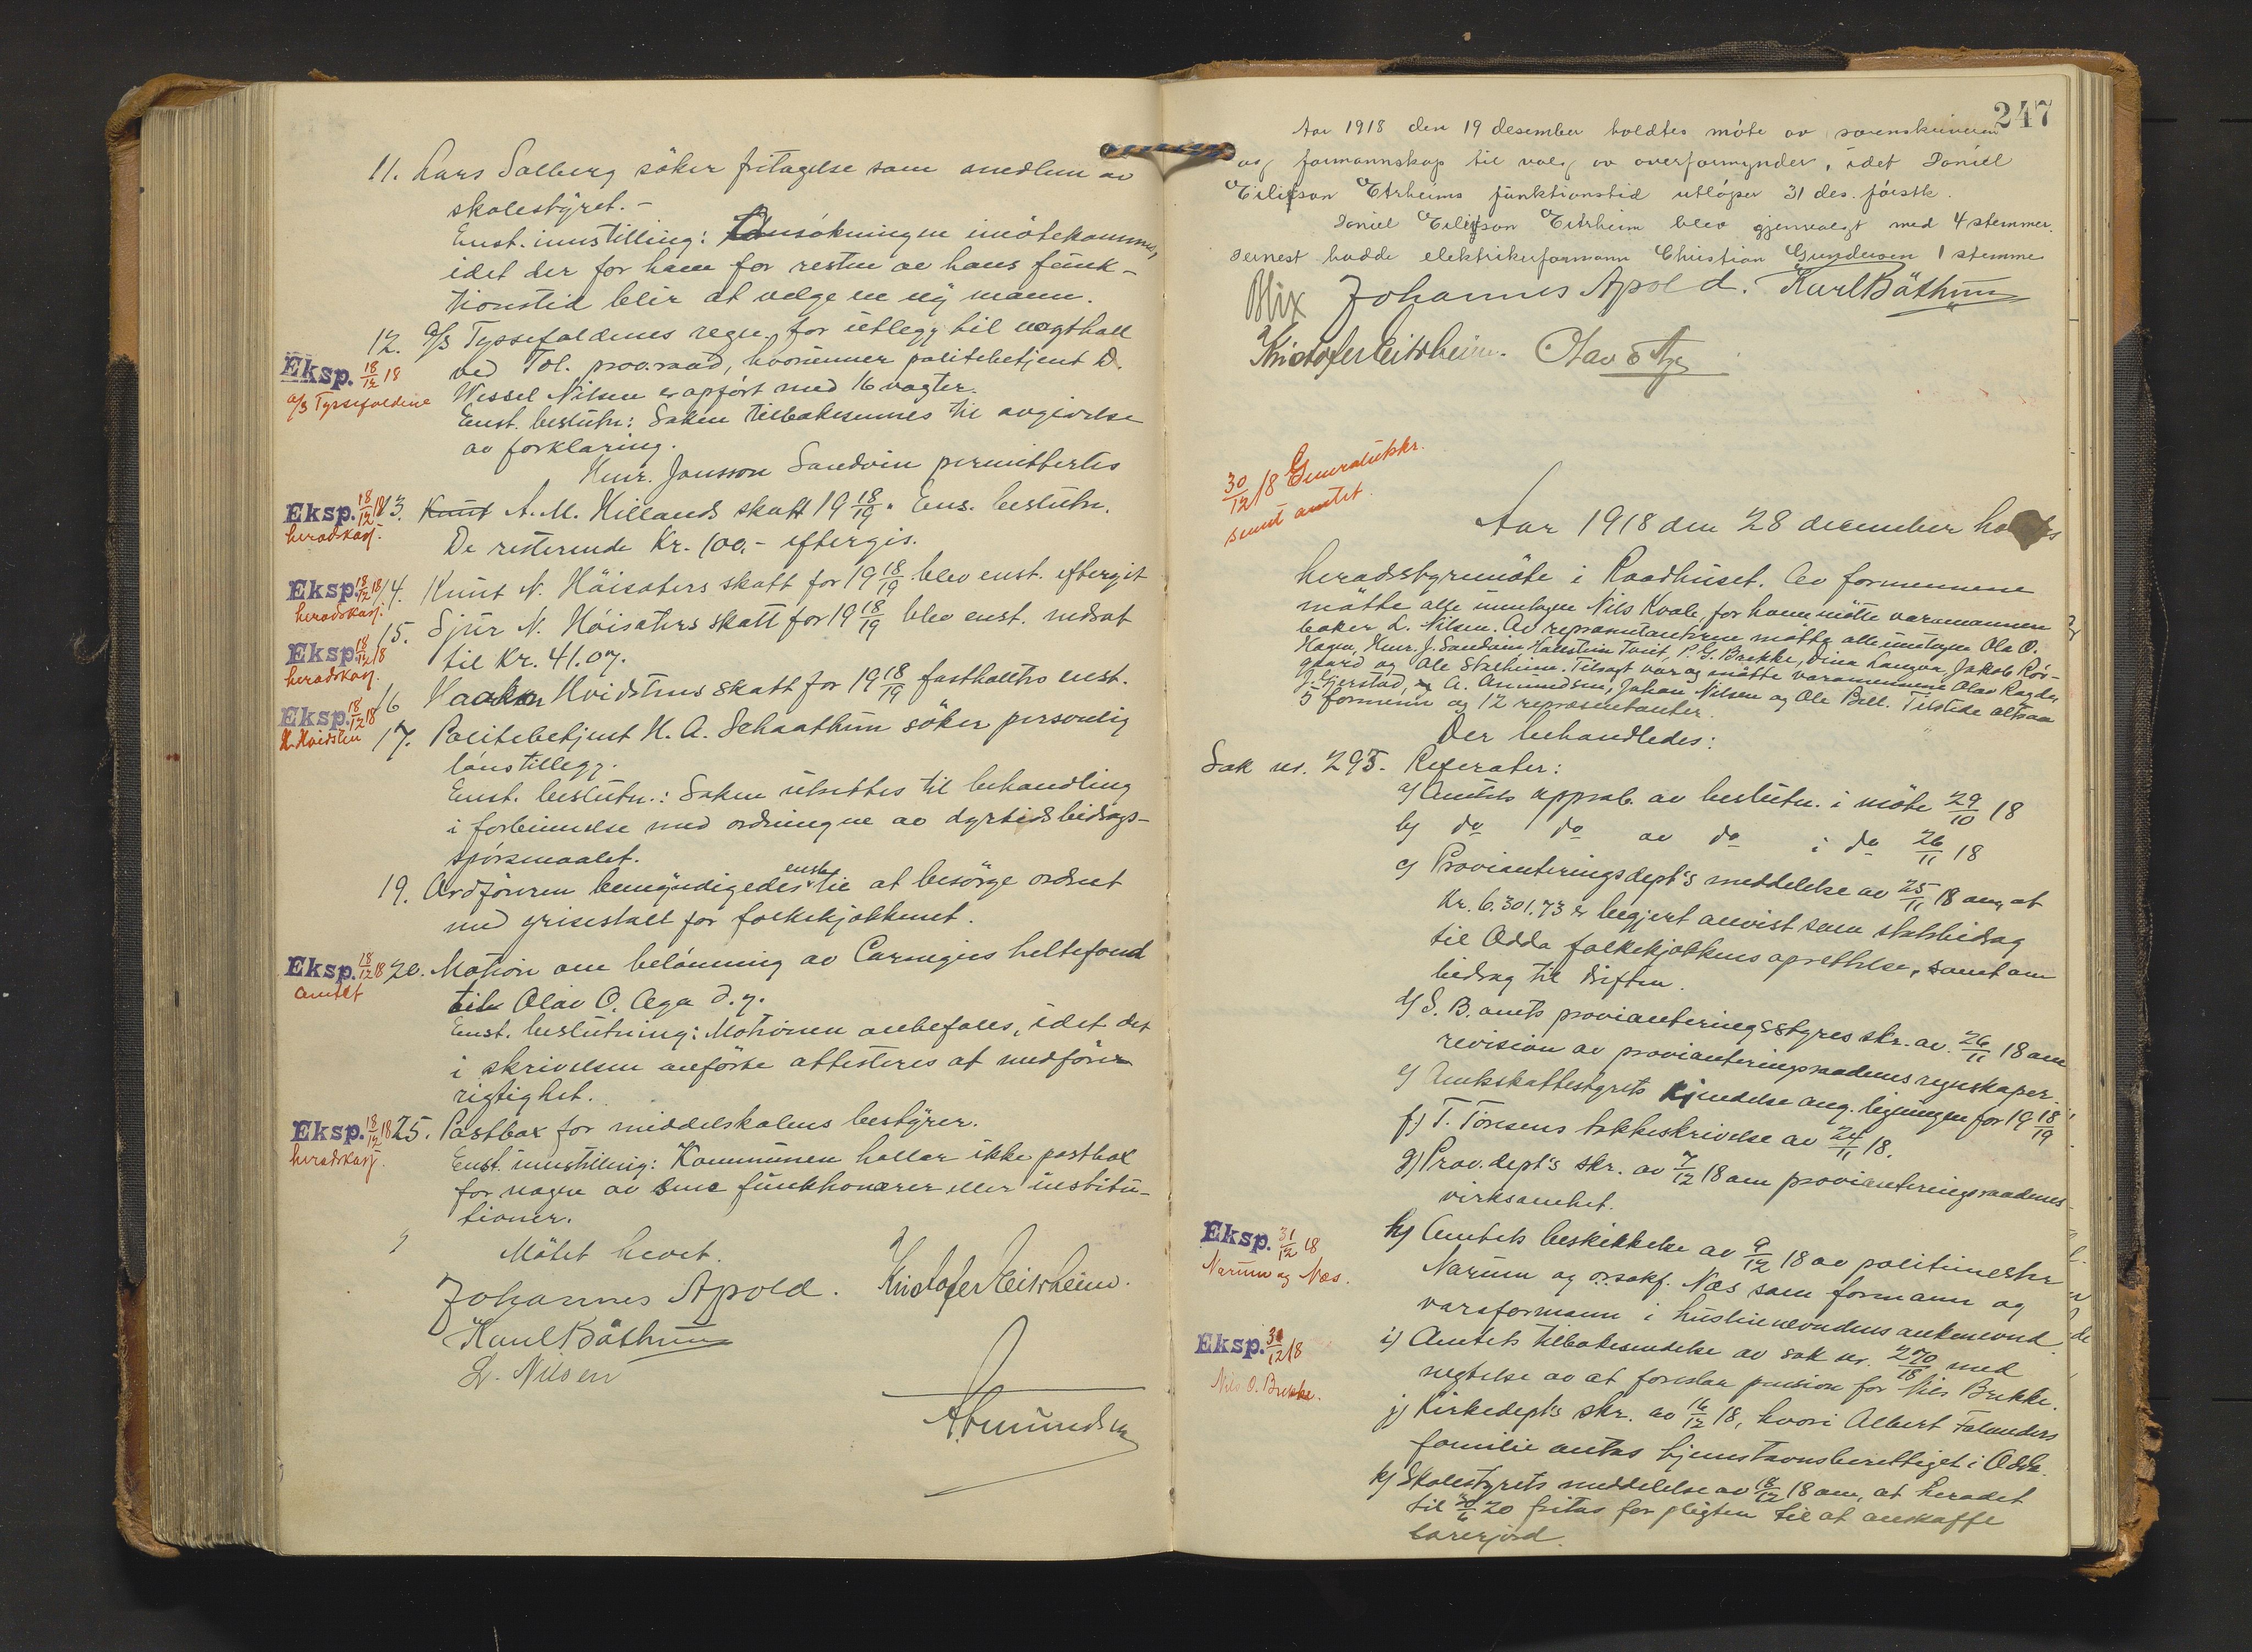 11. Lars Solberg söker fritagelse som medlem av
skolestyret. -
Enst. innstilling: Ansökningen imötekommes,
idet der for ham for resten av hans funk-
tionstid blir at velge en ny mann.
12. A/S Tyssefaldenes regn. for utlegg til vagthall
ved Tol. prov.raad, hvorunner politibetjent D.
Wessel Nilsen er opfört med 16 vagter.
Eksp. 18/12 18
a/s Tyssefaldene
Enst. beslutn: Saken tilbakesennes til avgivelse
av forklaring.
Hmr. Jonsson Sandvin permitertes
Eksp. 18/12 18
heradskasj.
13. Knut A. M. Hillands skatt 19 18/19. Ens. beslutn.
De resterende Kr. 100,- eftergis.
Eksp. 18/12 18
heradskasj.
14. Knut N. Höisæters skatt for 19 18/19 blev enst. eftergit
Eksp. 18/12 18
heradskasj.
15. Sjur N. Höisæters skatt for 19 18/19 blev enst. nedsat
til Kr. 41.07.
Eksp. 18/12 18
H. Hvidsten
16 Haakon Hvidstens skatt for 19 18/19 fastholdtes enst.
17. Politibetjent H. A. Schaathun söker personlig
lönstillegg.
Enst. beslutn.: Saken utsettes til behandling
i forbinnelse med ordningen av dyrtidsbidrags-
spörsmaalet.
19. Ordföreren bemyndigedes enst. til at besörge ordnet
med grisestall for folkekjökkenet.
Eksp. 18/12 18
Amtet
20. Motion om belönning av Carnegies heltefond
til Olav O. Aga d.y.
Enst. beslutning: Motionen anbefales, idet det
i skrivelsen anförte attesteres at medföre
rigtighet.
Eksp. 18/12 18
heradskasj.
25. Postbox for middelskolens bestyrer.
Enst. innstilling: Kommunen holder ikke postbox
for nogen av sine funktionærer eller institu-
tioner.
Mötet hevet.
Johannes Apold. Kristofer Eitrheim.
Karl Båthun
L. Nilsen
A. Amundsen
247
Aar 1918 den 19 desember holdtes möte av sorenskriveren
og formannskap til valg av overformynder, idet Daniel
Eilifson Eitrheims funktionstid utlöper 31 des. förstk.
Daniel Eilifson Eitrheim blev gjenvalgt med 4 stemmer.
Dernest hadde elektrikerformann Christian Gundersen 1 stemme
Blix Johannes Apold. Karl Båthun
Kristofer Eitrheim. Olav O Aga
30/12 18 Generalutskr.
sendt amtet.
Aar 1918 den 28 december holdtes
heradsstyremöte i Raadhuset. Av formennene
mötte alle unntagen Nils Kvale, for ham mötte varamannen
baker L. Nilsen. Av repræsentantene mötte alle unntagen Ola O.
Hagen, Hmr. J. Sandvin, Halstein Tveit, P. G. Bakke, Dina Langva, Jakob Rör-
gaard og Ole Staheim. Tilsagt var og mötte varamennene Olav Ragde,
J. Gjerstad, og A. Amundsen, Johan Nilsen og Ole Bell. Tilstede altsaa
5 formenn og 12 repræsentanter.
Der behandledes:
Sak nr. 295. Referater:
a) Amtets approb. av beslutn. i möte 29/10 18
b) do do av do i do 26/11 18
c) Provianteringsdept's meddelelse av 25/11 18 om, at
Kr. 6.301.73 er begjert anvist som statsbidrag
til Odda folkekjökkens oprettelse, samt om
bidrag til driften.
d) S. B. amts provianteringsstyres skr. av 26/11 18 om
revision av provianteringsraadenes regnskaper.
e) Amtsskattestyrets kjendelse ang. ligningen for 19 18/19
f) T. Toresens takkeskrivelse av 24/11 18.
g) Prov.dept's skr. av 7/12 18 om provianteringsraadenes
virksomhet.
Eksp. 31/12 18
Narum og Næs.
h) Amtets beskikkelse av 9/12 18 av politimester
Narum og o.r.sakf. Næs som formann og
varaformann i husleienevndens ankenevnd.
Eksp. 31/12 18
Nils O. Brekke.
i) Amtets tilbakesendelse av sak nr. 270/18 med
negtelse av at foreslaa pension for Nils Brekke.
j) Kirkedept's skr. av 16/12 18, hvori Albert Folanders
familie antas hjemstavnsberettiget i Odda.
k) Skolestyrets meddelelse av 18/12 18 om, at heradet
til 30/6 20 fritas for pligten til at anskaffe
lærerjord.